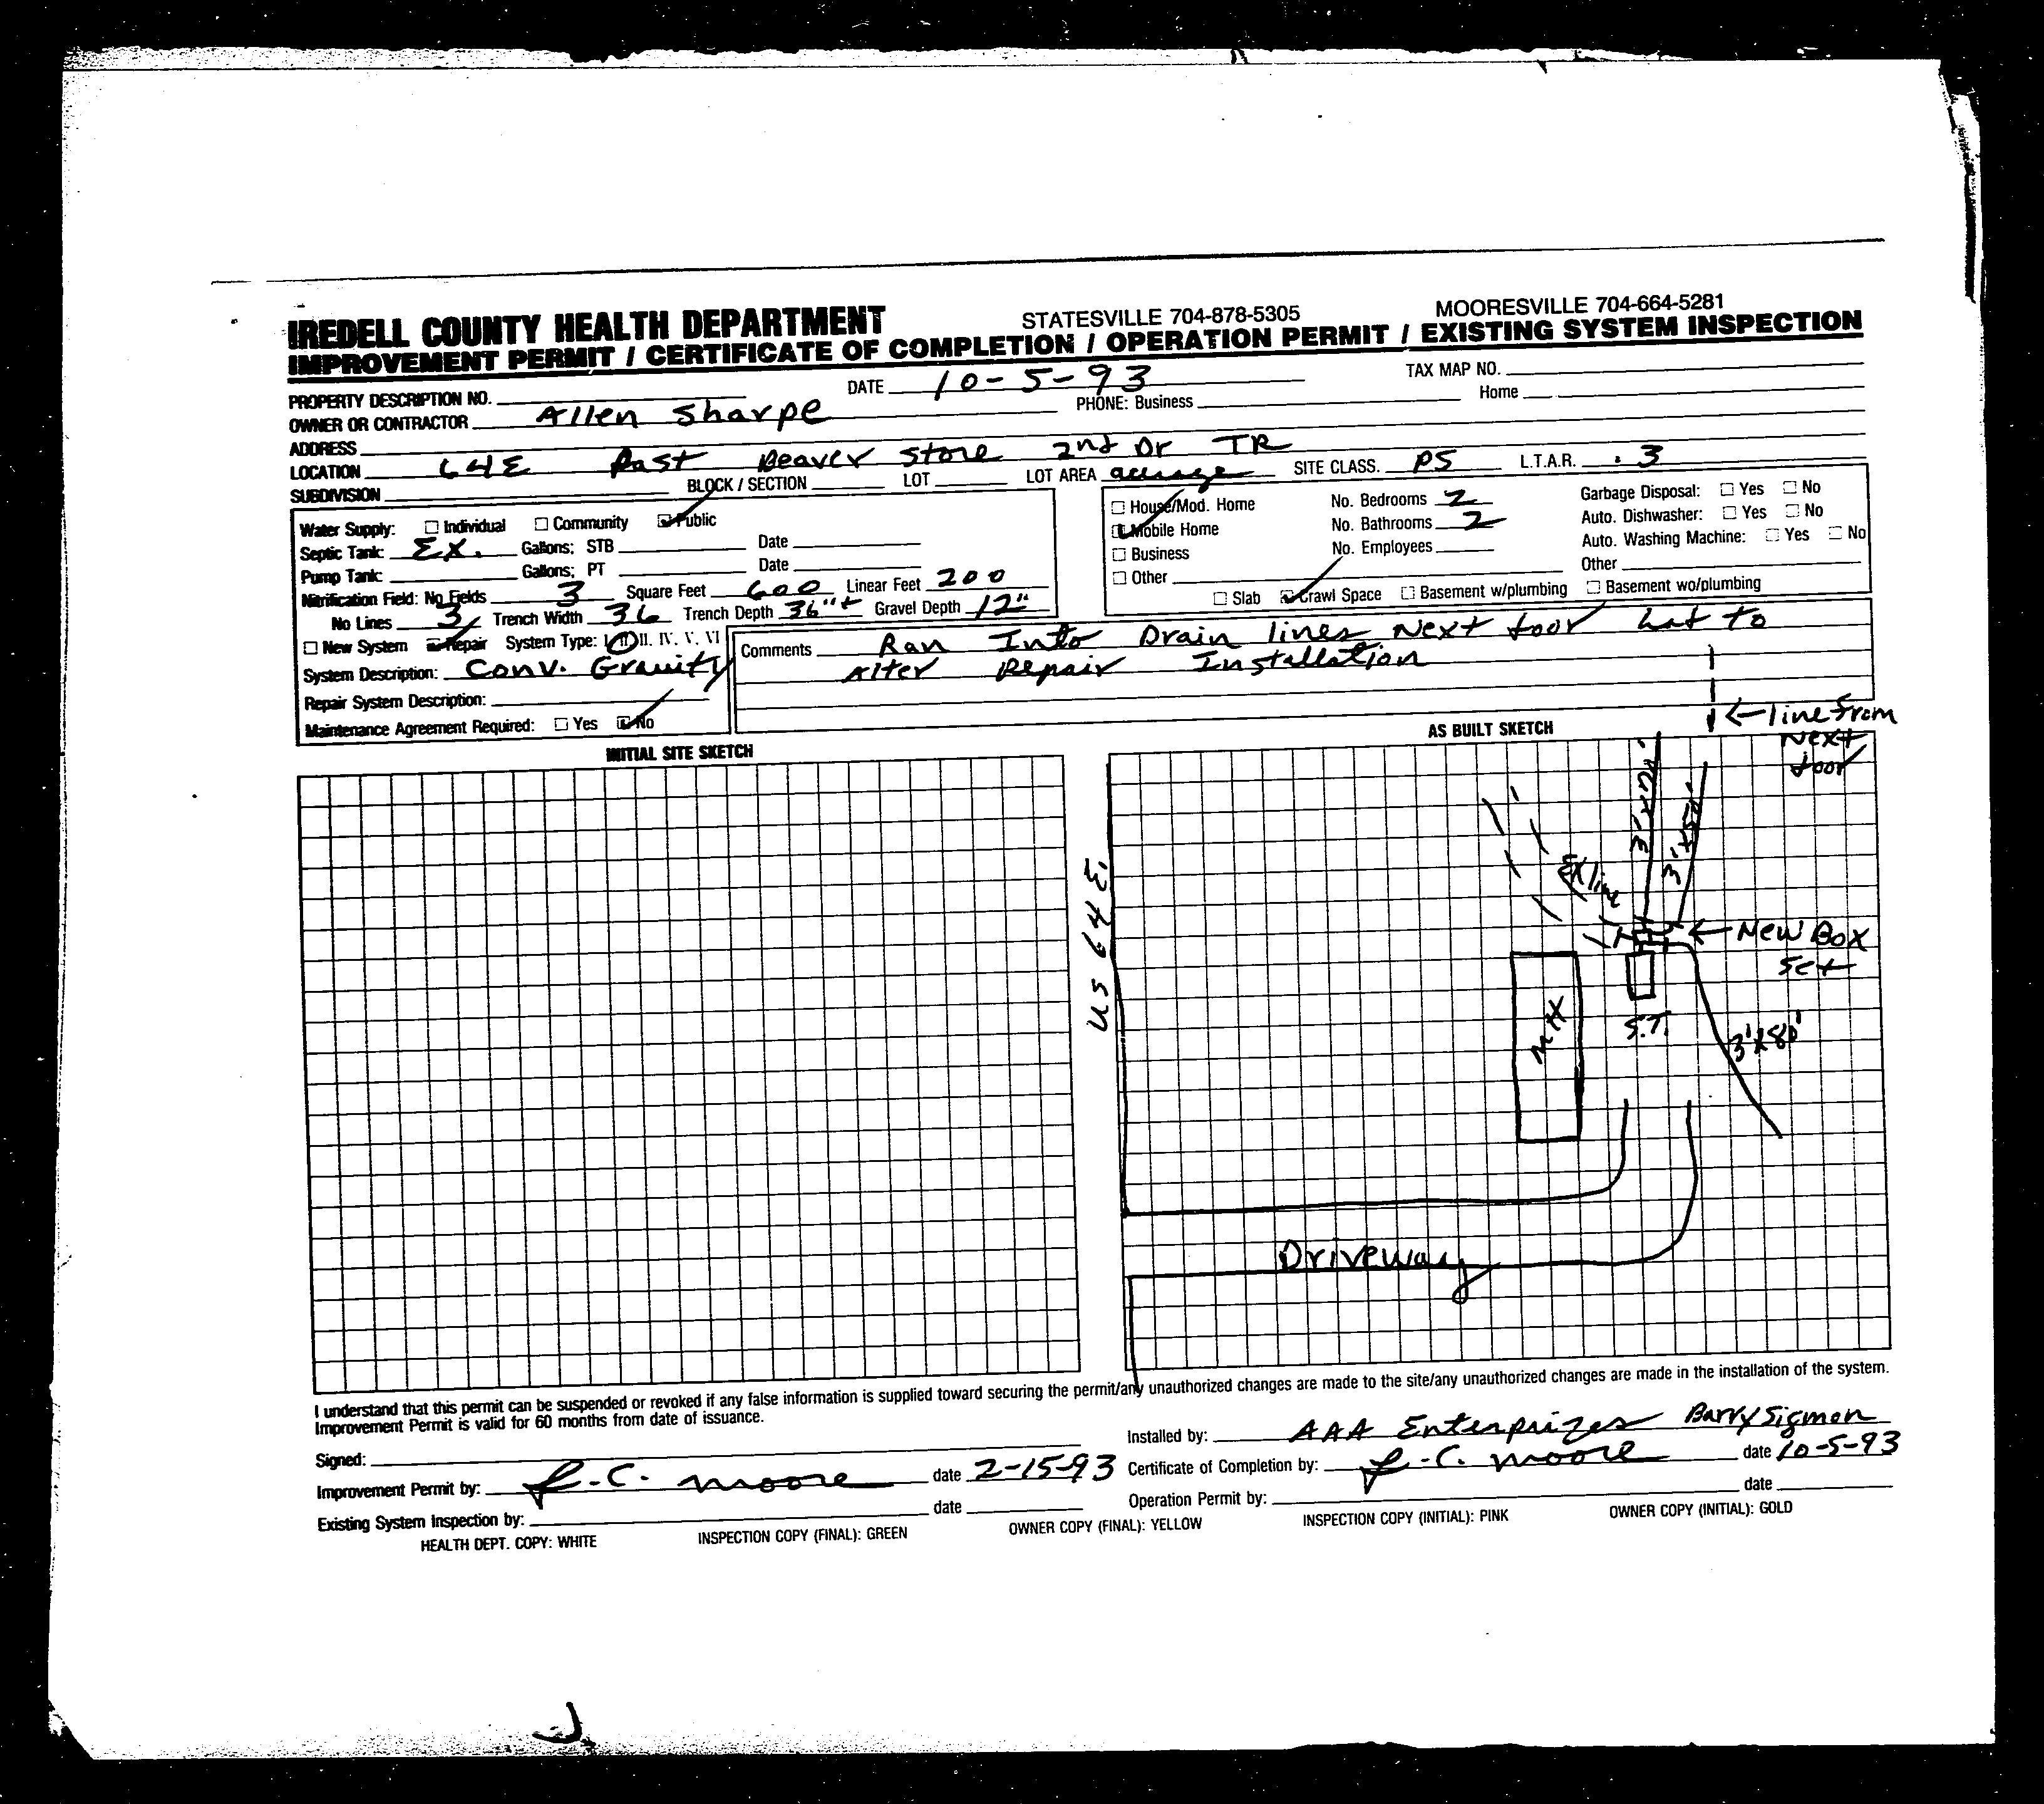 IREDELL COUNTY HEALTH DEPARTMENT STATESVILLE 704-878-5305 MOORESVILLE 704-664-5281
IMPROVEMENT PERMIT / CERTIFICATE OF COMPLETION / OPERATION PERMIT / EXISTING SYSTEM INSPECTION
PROPERTY DESCRIPTION NO. DATE 10-5-93 TAX MAP NO.
OWNER OR CONTRACTOR Allen Sharpe PHONE: Business Home
ADDRESS
LOCATION 64E Past Beaver Store 2nd Dr TR
SUBDIVISION BLOCK / SECTION LOT LOT AREA acreage SITE CLASS. PS L.T.A.R. .3
Water Supply: Individual Community Public
Septic Tank: Ex. Gallons; STB Date
Pump Tank: Gallons; PT Date
Nitrification Field: No Fields 3 Square Feet 600 Linear Feet 200
No Lines 3 Trench Width 36 Trench Depth 36"+ Gravel Depth 12"
New System Repair System Type: I II III. IV. V. VI
System Description: Conv. Gravity
Repair System Description:
Maintenance Agreement Required: Yes No
House/Mod. Home No. Bedrooms 2 Garbage Disposal: Yes No
Mobile Home No. Bathrooms 2 Auto. Dishwasher: Yes No
Business No. Employees Auto. Washing Machine: Yes No
Other Other
Slab Crawl Space Basement w/plumbing Basement wo/plumbing
Comments Ran Into Drain lines Next door had to
Alter Repair Installation
INITIAL SITE SKETCH
AS BUILT SKETCH
←line from
Next
door
3'x70'
3'x50'
Ex line
← New Box
Set
US 64 E.
M.H
S.T.
3'x80'
Driveway
I understand that this permit can be suspended or revoked if any false information is supplied toward securing the permit/any unauthorized changes are made to the site/any unauthorized changes are made in the installation of the system.
Improvement Permit is valid for 60 months from date of issuance.
Signed:
Installed by: AAA Enterprizes Barry Sigmon
Improvement Permit by: J.C. Moore date 2-15-93
Certificate of Completion by: J.C. Moore date 10-5-93
Existing System Inspection by: date
Operation Permit by: date
HEALTH DEPT. COPY: WHITE INSPECTION COPY (FINAL): GREEN OWNER COPY (FINAL): YELLOW INSPECTION COPY (INITIAL): PINK OWNER COPY (INITIAL): GOLD